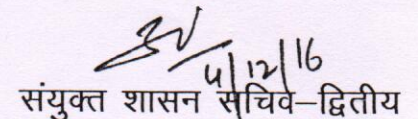 4/12/16
संयुक्त शासन सचिव–द्वितीय